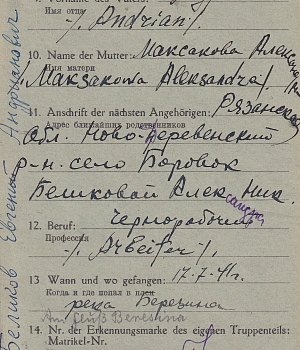 Имя отца
/. Andrian /.
10. Name der Mutter: Максакова Алекса
Имя матери
Макзакоwа Aleksandra /.
11. Anschrift der nächsten Angehörigen: Рязанская
Адрес ближайших родственников
обл. Ново-Деревенский
р-н. село Боровок
Беликовой Александ Ник.
12. Beruf: Чернорабочий
Профессия
/. Arbeiter /.
13 Wann und wo gefangen: 17-7-41г.
Когда и где попал в плен
река Березина
Am Fluß Beresina
14. Nr. der Erkennungsmarke des eigenen Truppenteils:
Matrikel-Nr.
Беликов Евгений Андрианович